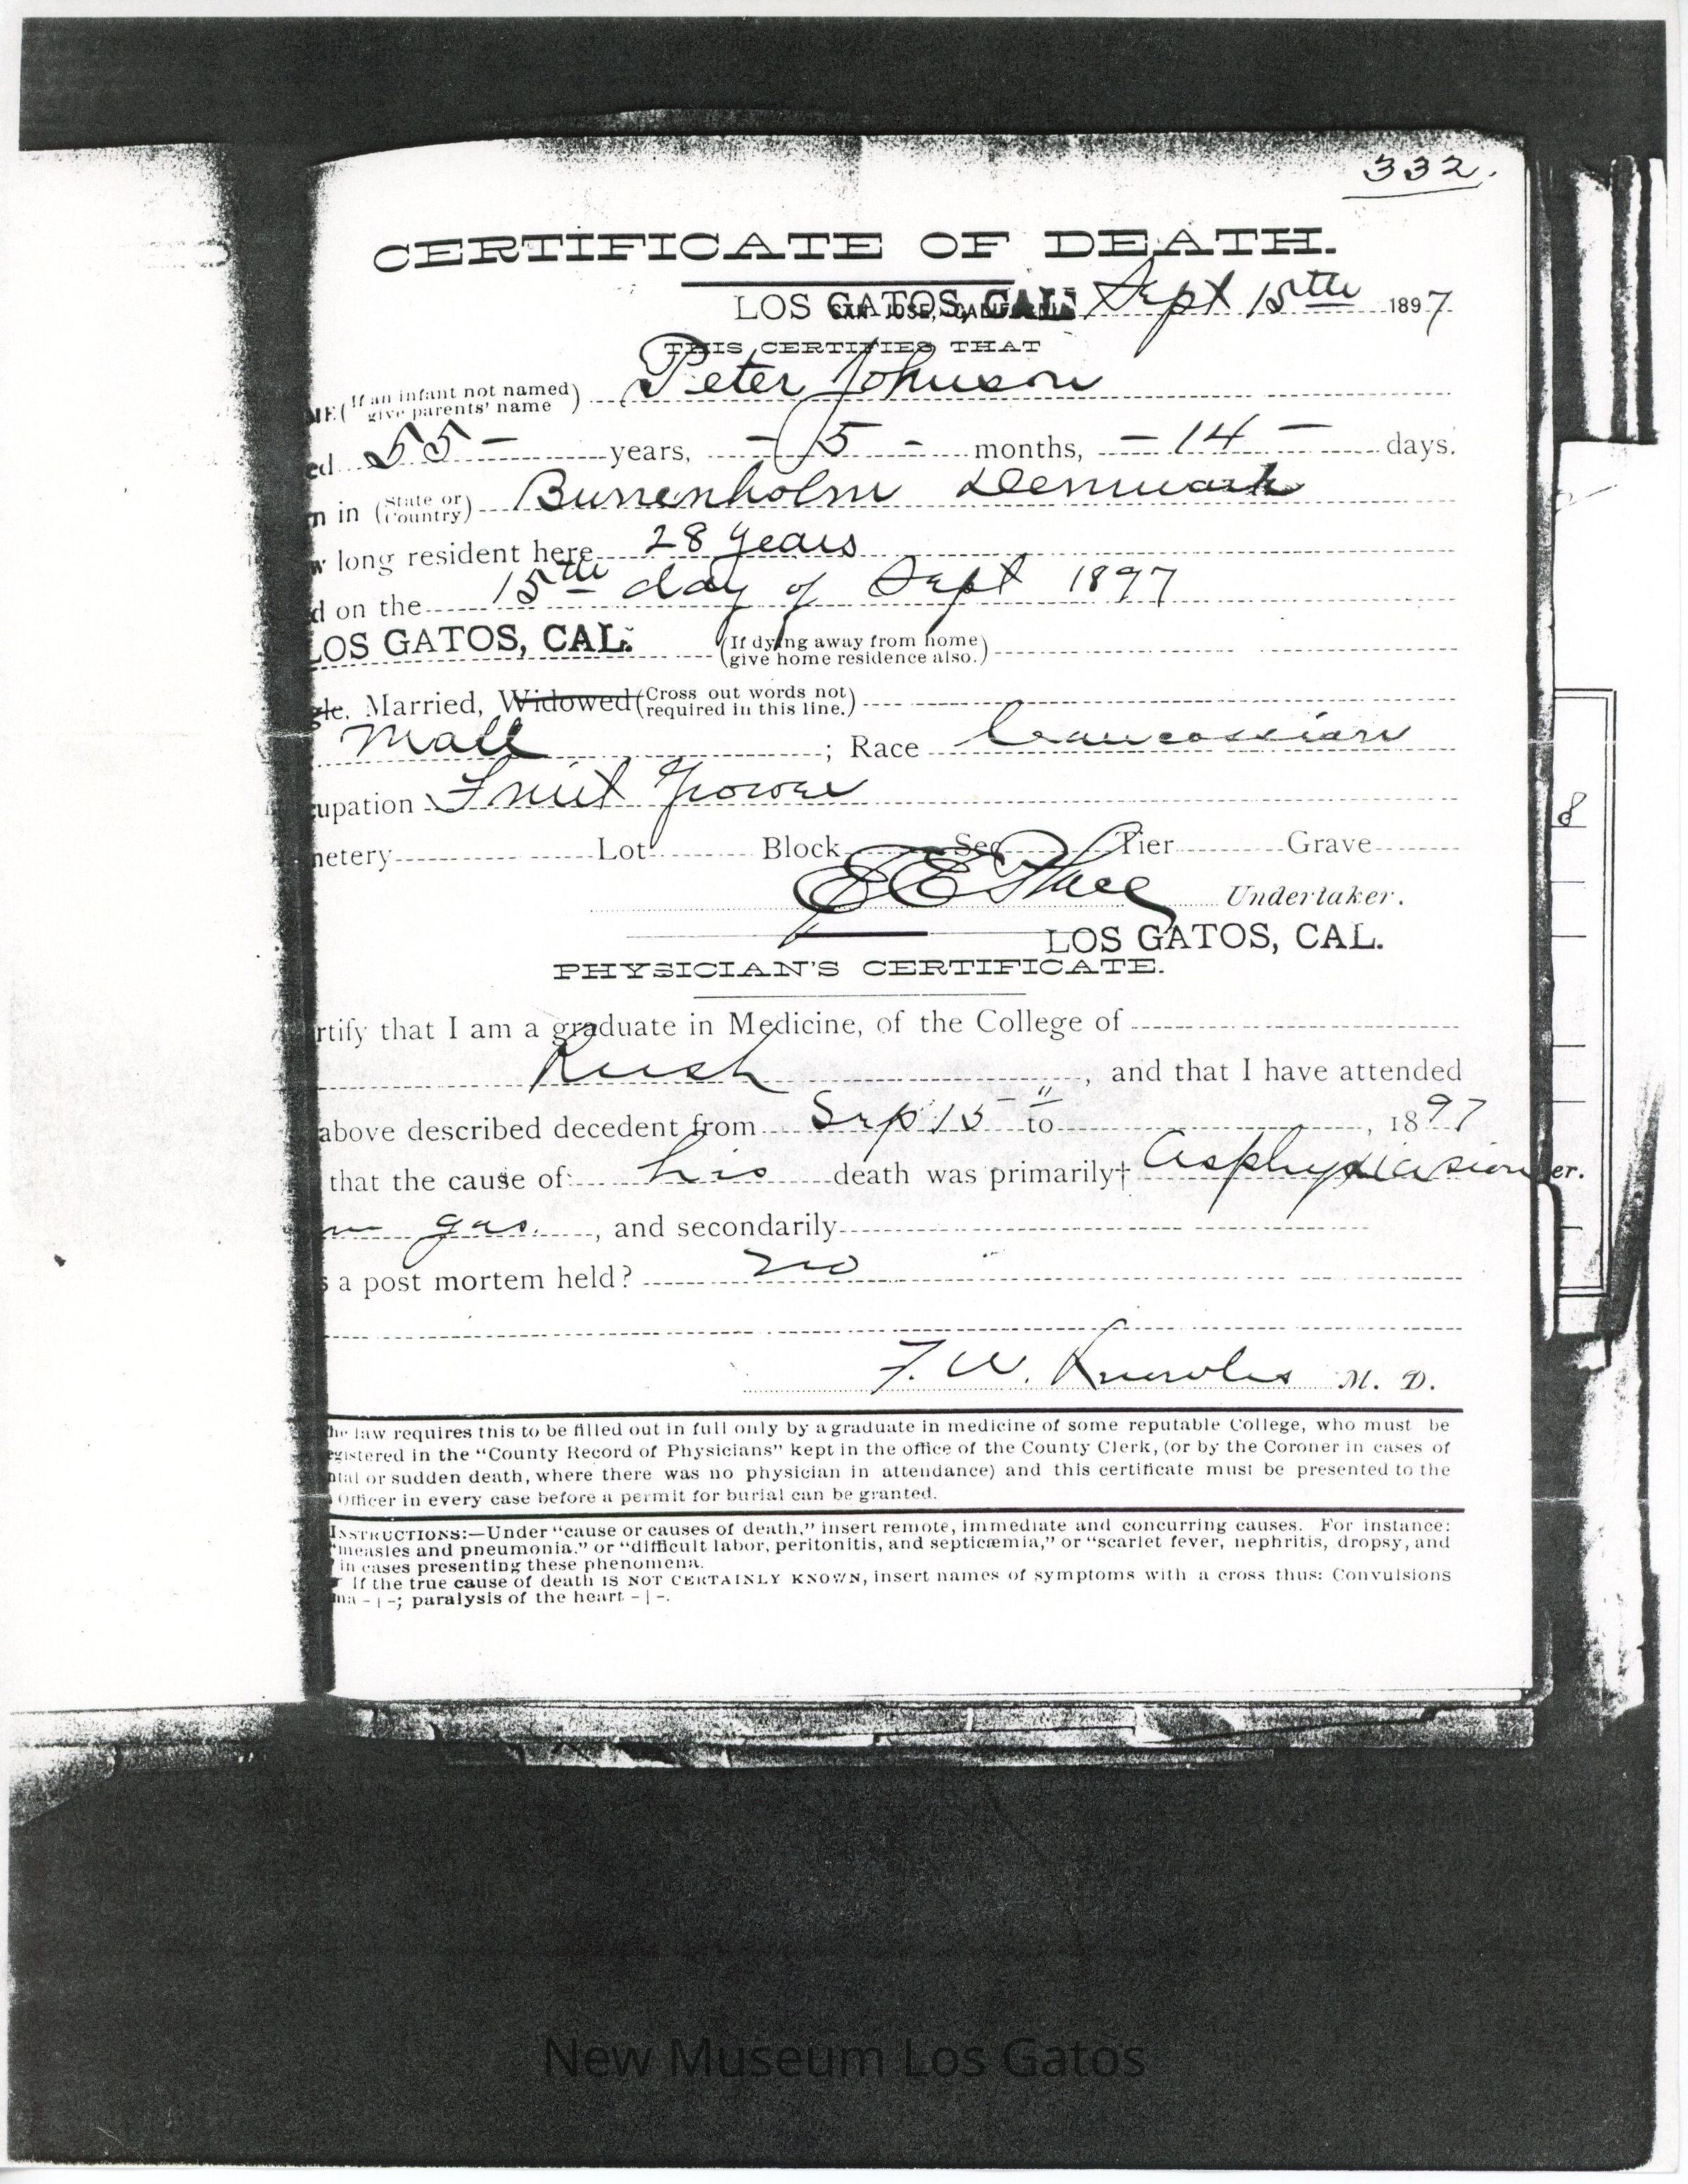 332.
CERTIFICATE OF DEATH.
LOS GATOS, CAL. Sept 15th 1897
THIS CERTIFIES THAT
ME (If an infant not named give parents' name) Peter Johnson
ed 55 - years, - 5 - months, - 14 - days.
n in (State or Country) Burrenholm Denmark
w long resident here 28 years
d on the 15th day of Sept 1897
LOS GATOS, CAL. (If dying away from home give home residence also.)
gle, Married, Widowed (Cross out words not required in this line.)
Male ; Race Caucassian
cupation Fruit Grower
netery Lot Block Sec Tier Grave
E E Undertaker.
LOS GATOS, CAL.
PHYSICIAN'S CERTIFICATE.
rtify that I am a graduate in Medicine, of the College of
Rush , and that I have attended
above described decedent from Sep 15 " to , 1897
that the cause of his death was primarily† Asphyxiasion er.
m gas. , and secondarily
s a post mortem held? no
F. W. Knowles M. D.
he law requires this to be filled out in full only by a graduate in medicine of some reputable College, who must be
egistered in the "County Record of Physicians" kept in the office of the County Clerk, (or by the Coroner in cases of
ntal or sudden death, where there was no physician in attendance) and this certificate must be presented to the
Officer in every case before a permit for burial can be granted.
INSTRUCTIONS:—Under "cause or causes of death," insert remote, immediate and concurring causes. For instance:
"measles and pneumonia," or "difficult labor, peritonitis, and septicæmia," or "scarlet fever, nephritis, dropsy, and
in cases presenting these phenomena.
If the true cause of death IS NOT CERTAINLY KNOWN, insert names of symptoms with a cross thus: Convulsions
ma -|-; paralysis of the heart -|-.
8
New Museum Los Gatos